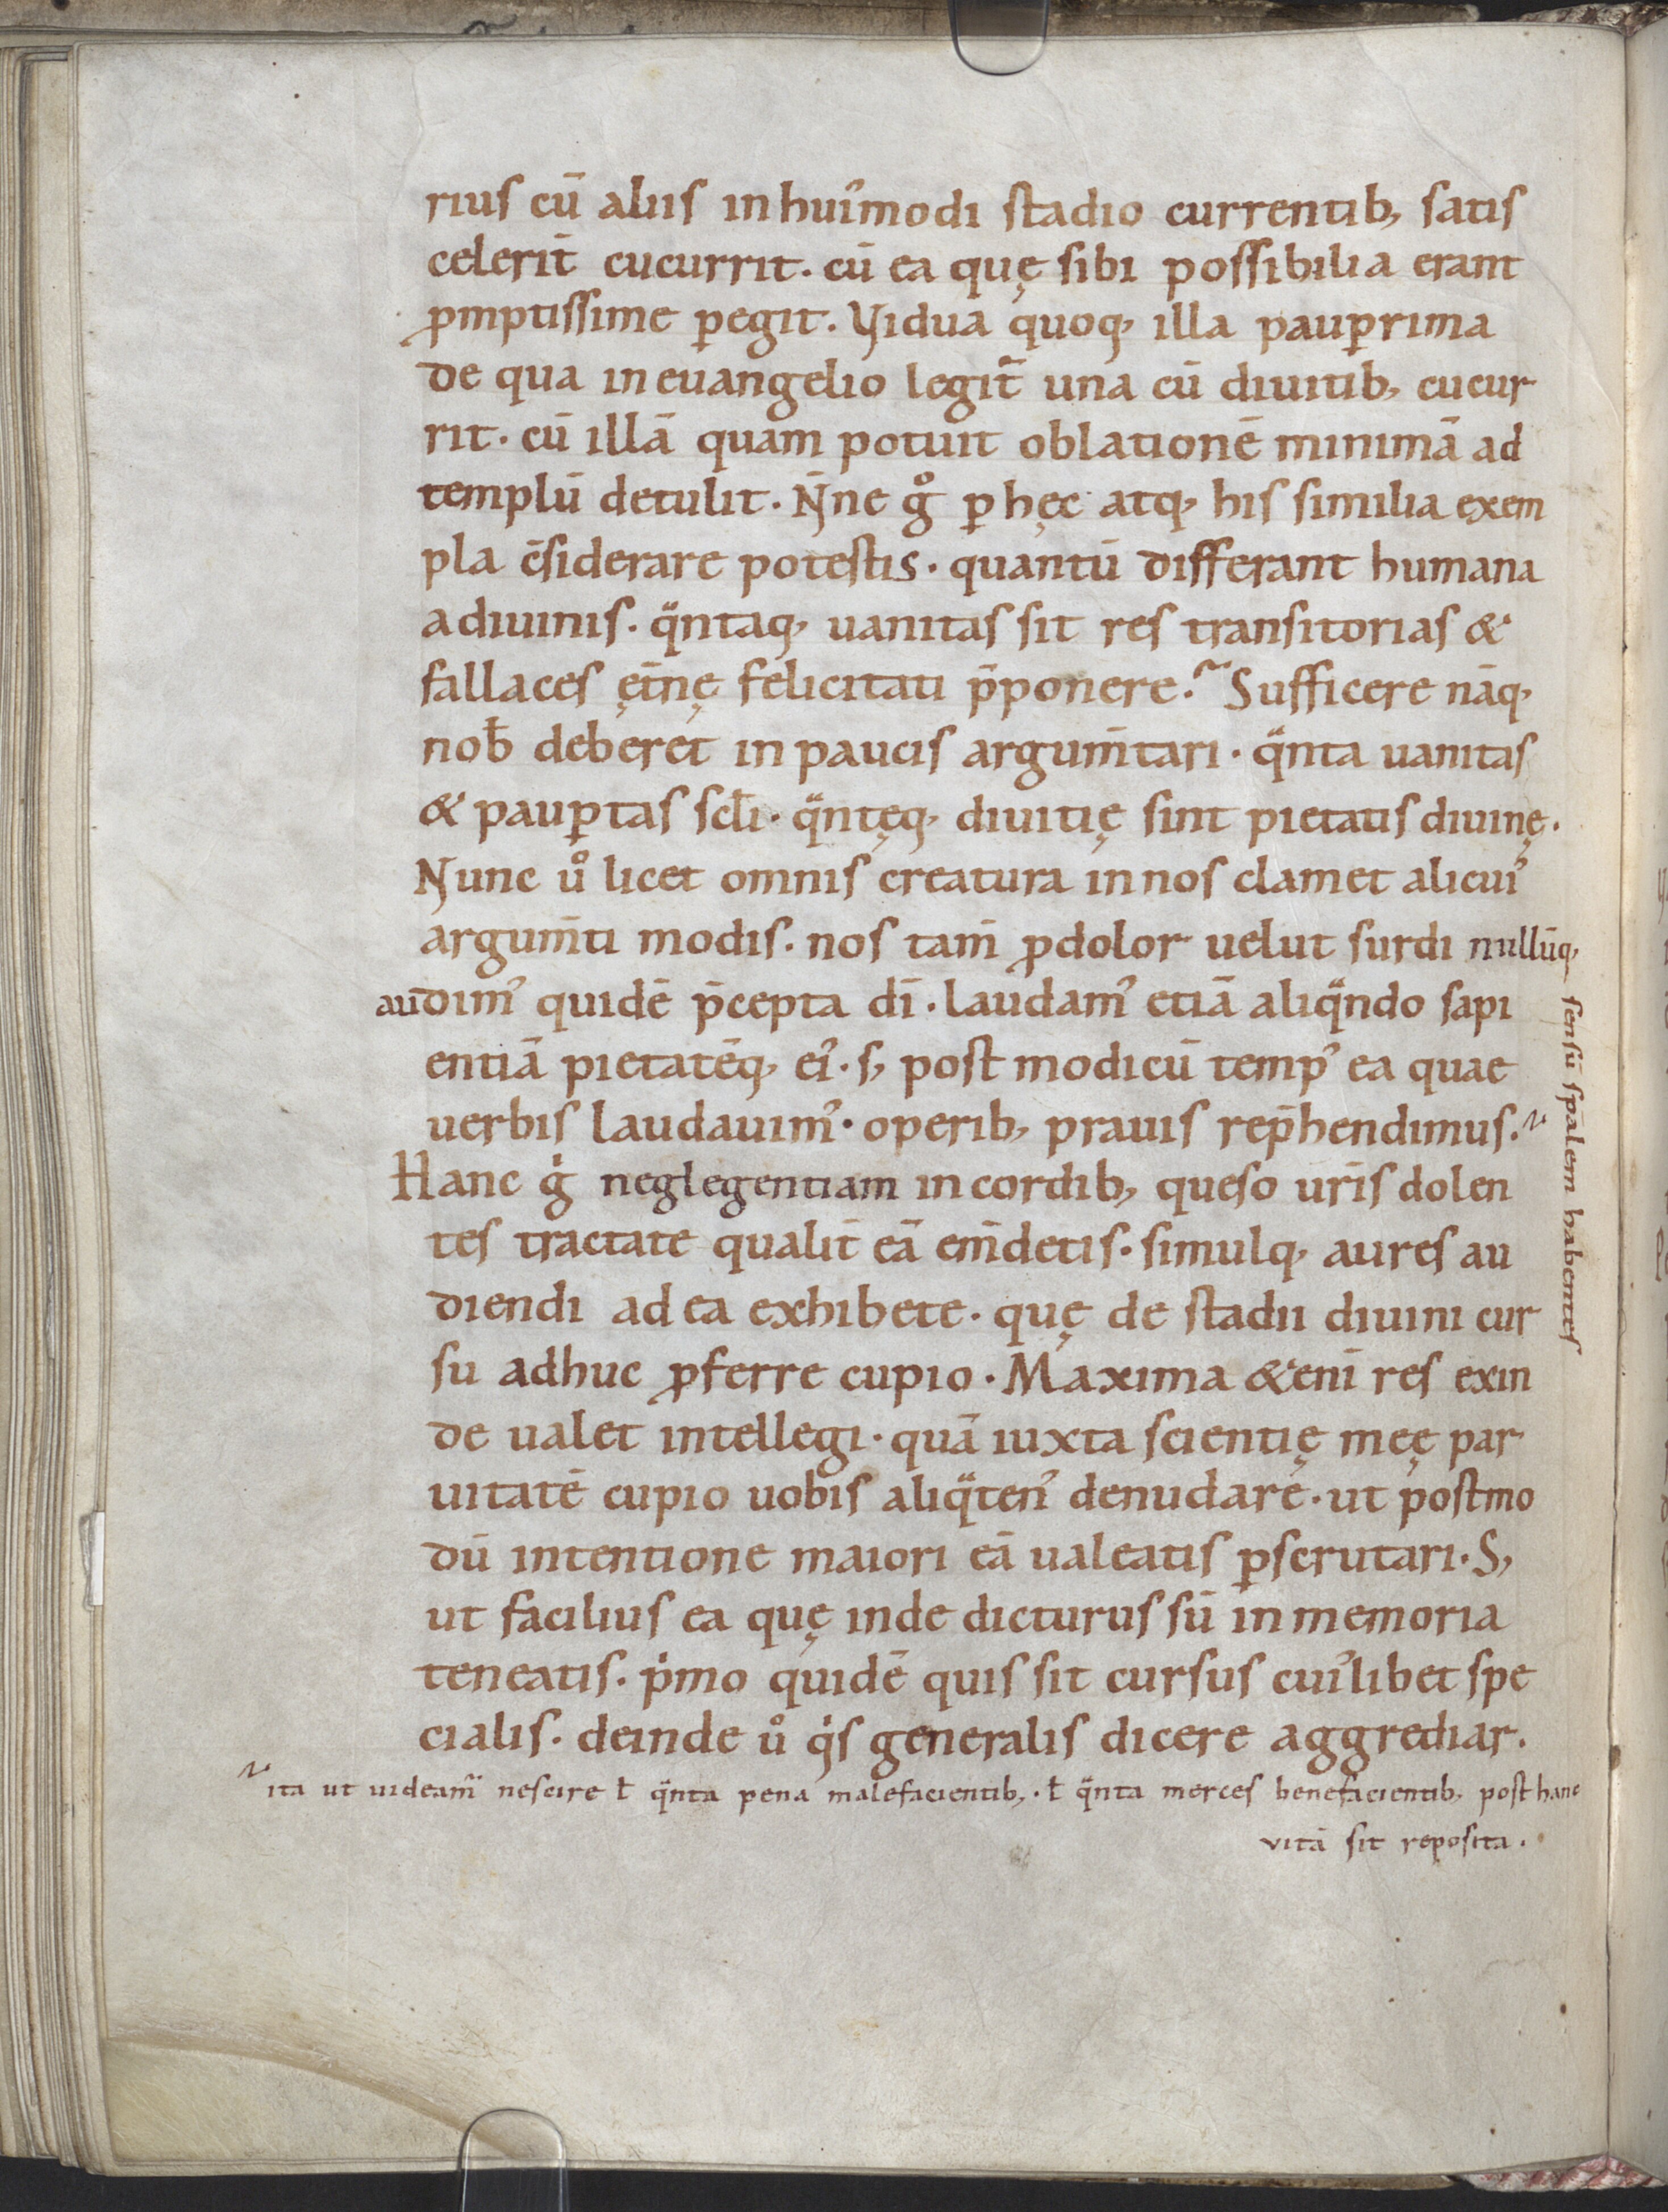 rius cū aliis in hui᾽modi stadio currentib; satis
celerit̄ cucurrit. cū ea quę sibi possibilia erant
ꝓmptissime ꝑegit. Vidua quoq; illa pauꝑrima
de qua in euangelio legit᷑ una cū diuitib; cucur
rit. cū illā quam potuit oblationē minimā ad
templū detulit. N̄ne gͦ ꝑ hęc atq; his similia exem
pla c̄siderare potestis. quantū differant humana
a diuinis. qᷓntaq; uanitas sit res transitorias &
fallaces ęt̄nę felicitati p̄ponere? Sufficere nāq;
nob̄ deberet in paucis argum̄tari. qᷓnta uanitas
& pauꝑtas scl̄i. qᷓntęq; diuitię sint pietatis diuinę.
Nunc uͦ licet omnis creatura in nos clamet alicui᾽
argum̄ti modis. nos tam̄ ꝓdolor uelut surdi nullūq;
sensū sp̄alem habentes
audim᾽ quidē p̄cepta dī. laudam᾽ etiā aliqᷓndo sapi
entiā pietatēq; ei᾽. s; post modicū temp᾽ ea quae
uerbis laudauim᾽. operib; prauis rep̄hendimus.
Hanc gͥ neglegentiam in cordib; queso ur̄is dolen
tes tractate qualit̄ eā em̄detis. simulq; aures au
diendi ad ea exhibete. quę de stadii diuini cur
su adhuc ꝓferre cupio. Maxima &enī res exin
de ualet intellegi. quā iuxta scientię meę par
uitatē cupio uobis aliqᷓten᾽ denudare. ut postmo
dū intentione maiori eā ualeatis ꝑscrutari. S;
ut facilius ea quę inde dicturus sū in memoria
teneatis. pͥmo quidē quis sit cursus cui᾽libet spe
cialis. deinde uͦ qͥs generalis dicere aggrediar.
ita ut uideam᾽ nescire ł qᷓnta pena malefacientib;. ł qᷓnta merces benefacientib; post hanc
vitā sit reposita.